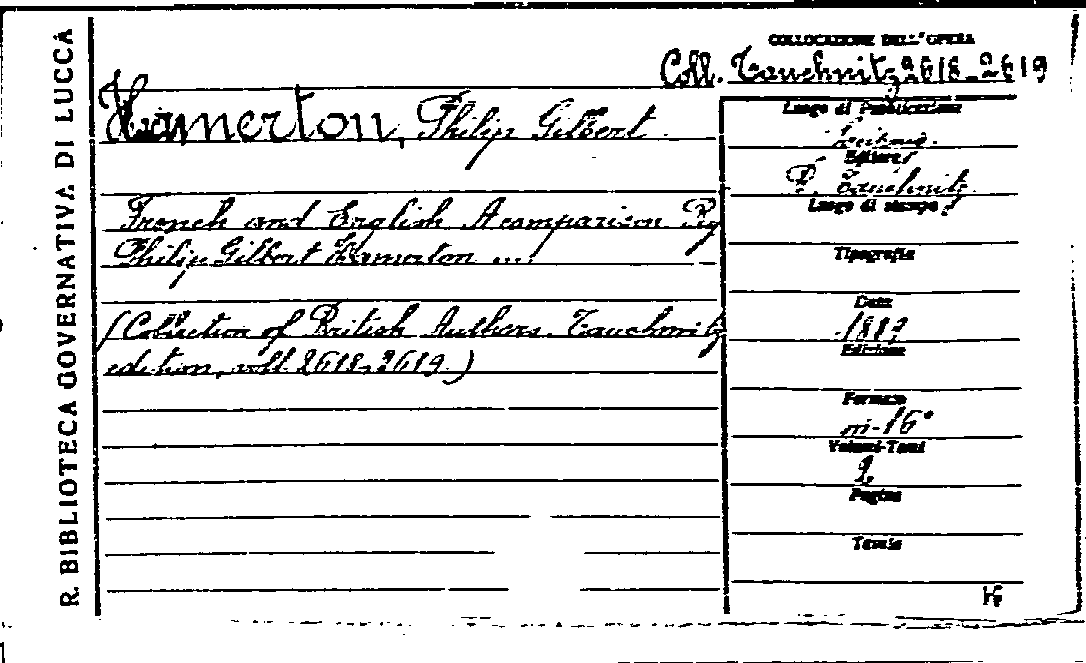 R. BIBLIOTECA GOVERNATIVA DI LUCCA
COLLOCAZIONE DELL'OPERA
Coll. Tauchnitz 2618-2619
Hamerton, Philip Gilbert
French and English A comparison By
Philip Gilbert Hamerton ...
(Collection of British Authors. Tauchnitz
edition, voll. 2618-2619.)
Luogo di Pubblicazione
Editore
B. Tauchnitz
Luogo di stampa
Tipografia
Data
Edizione
Formato
in-16°
Volumi-Tomi
2
Pagine
Tavole